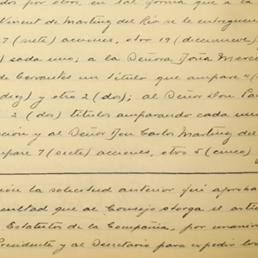 dos por otros, en tal forma que a la
Vincent de Martínez del Río se le entreguen
7 (siete) acciones, otro 19 (diecinueve)
) cada uno; a la Señora Doña Merce
de Cervantes un título que ampare
(diez) y otro 2 (dos); al Señor Don Pa
2 (dos) títulos amparando cada uno
ción y al Señor Don Carlos Martínez del
pare 7 (siete) acciones, otro 5 (cinco) y
ción la solicitud anterior fué aproba
cultad que al Consejo otorga el artí
Estatutos de la Compañía, por unanimi
Presidente y al Secretario para expedir los